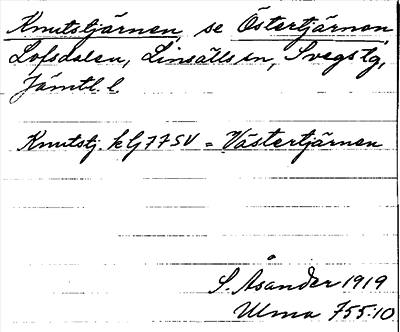 Knutstjärnen, se Östertjärnen,
Lofsdalen, Linsälls sn, Svegs tg,
Jämtl. l.
Knutstj. = Västertjärnen
S. Åsander 1919
Ulma 755:10